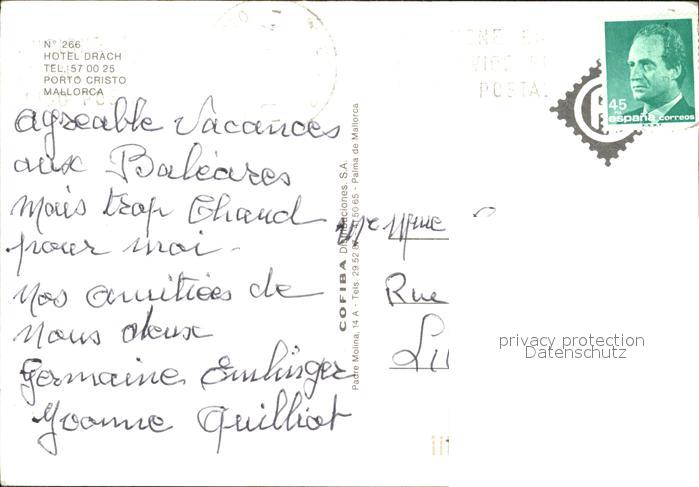 Nº 266
HOTEL DRACH
TEL. 57 00 25
PORTO CRISTO
MALLORCA
agreable Vacances
aux Baléares
Mais trop Chaud
pour moi -
Nos amitiées de
Nous deux
Germaine
Yvonne Quilliot
COFIBA Distribuciones, S.A.
Padre Molina, 14 A - Tels: 29 52 50 65 - Palma de Mallorca
Mme
Rue
45
españa correos
POSTA
privacy protection
Datenschutz